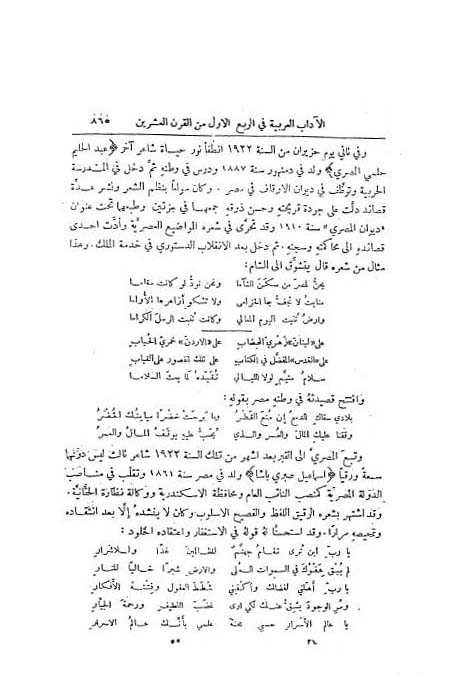 الآداب العربية في الربع الاول من القرن العشرين ٨٦٥
وفي ثاني يوم حزيران من السنة ١٩٢٢ انطفأ نور حياة شاعر آخر ﴿عبد الحليم
حلمي المصري﴾ ولد في دمنهور سنة ١٨٨٧ ودرس في وطنه ثم دخل في المدرسة
الحربية وتوظّف في ديوان الاوقاف في مصر. وكان مولعاً بنظم الشعر ونشر عدّة
قصائد دلّت على جودة قريحته وحسن ذوقه جمعها في جزئين وطبعها تحت عنوان
«ديوان المصري» سنة ١٩١٠ وقد تحرّى في شعره المواضيع العصريّة وأدّت احدى
قصائده الى محاكمته وسجنه. ثم دخل بعد الانقلاب الدستوري في خدمة الملك. وهذا
مثال من شعره قال يتشوّق الى الشام:
يحنّ لمصرَ من سكن الشآما ونحن نودّ لو كانت مقاما
منابتُ لا تجفّ بها الخزامى ولا تشكو أزاهرها الأُواما
وارضٌ تُنبت اليوم المعالي وكانت تُنبت الرسلَ الكراما
على «لبنان» زهريّ الهضاب على «الاردن» خمريّ الحباب
على «القدس» المفضّل في الكتاب على تلك القصور على القباب
سلامُ متيّمٍ لولا الليالي لقيّده كما يبث السلاما
وافتتح قصيدتهُ في وطنه مصر بقوله:
بلادي سقاكِ الدمعُ إن مُنع القطرُ ولا برحت خضرًا مباينكِ الخضرُ
وقفنا عليكِ المالَ والعمرَ والذي يُحبّ عليهِ يوقفُ المال والعمرُ
وتبع المصريّ الى القبر بعد اشهر من تلك السنة ١٩٢٢ شاعر ثالث ليس دونهما
سمعة ورقياً ﴿اسماعيل صبري باشا﴾ ولد في مصر سنة ١٨٦١ وتقلّب في مناصب
الدولة المصريّة كمنصب النائب العام ومحافظة الاسكندرية ووكالة نظارة الحقّانيّة.
وقد اشتهر بشعره الرقيق اللفظ والفصيح الاسلوب وكان لا ينشده إلّا بعد انتقاده
وتمحيصه مرارًا. وقد استحسنّا له قولهُ في الاستغفار واعتقاده الخلود:
يا ربّ اين تُرى تُقام جهنّمٌ للظالمين غدًا وللاشرارِ
لم يُبقِ عفوكَ في السموات العُلى والارضِ شبرًا خاليًا للنارِ
يا ربّ أهّلني لفضلك واكفني شططَ العقول وفتنة الافكارِ
ومُرِ الوجودَ يشفّ عنك لكي ارى غضبَ اللطيفِ ورحمةَ الجبّارِ
يا عالم الأسرار حسبي محنة علمي بأنّك عالمُ الاسرارِ